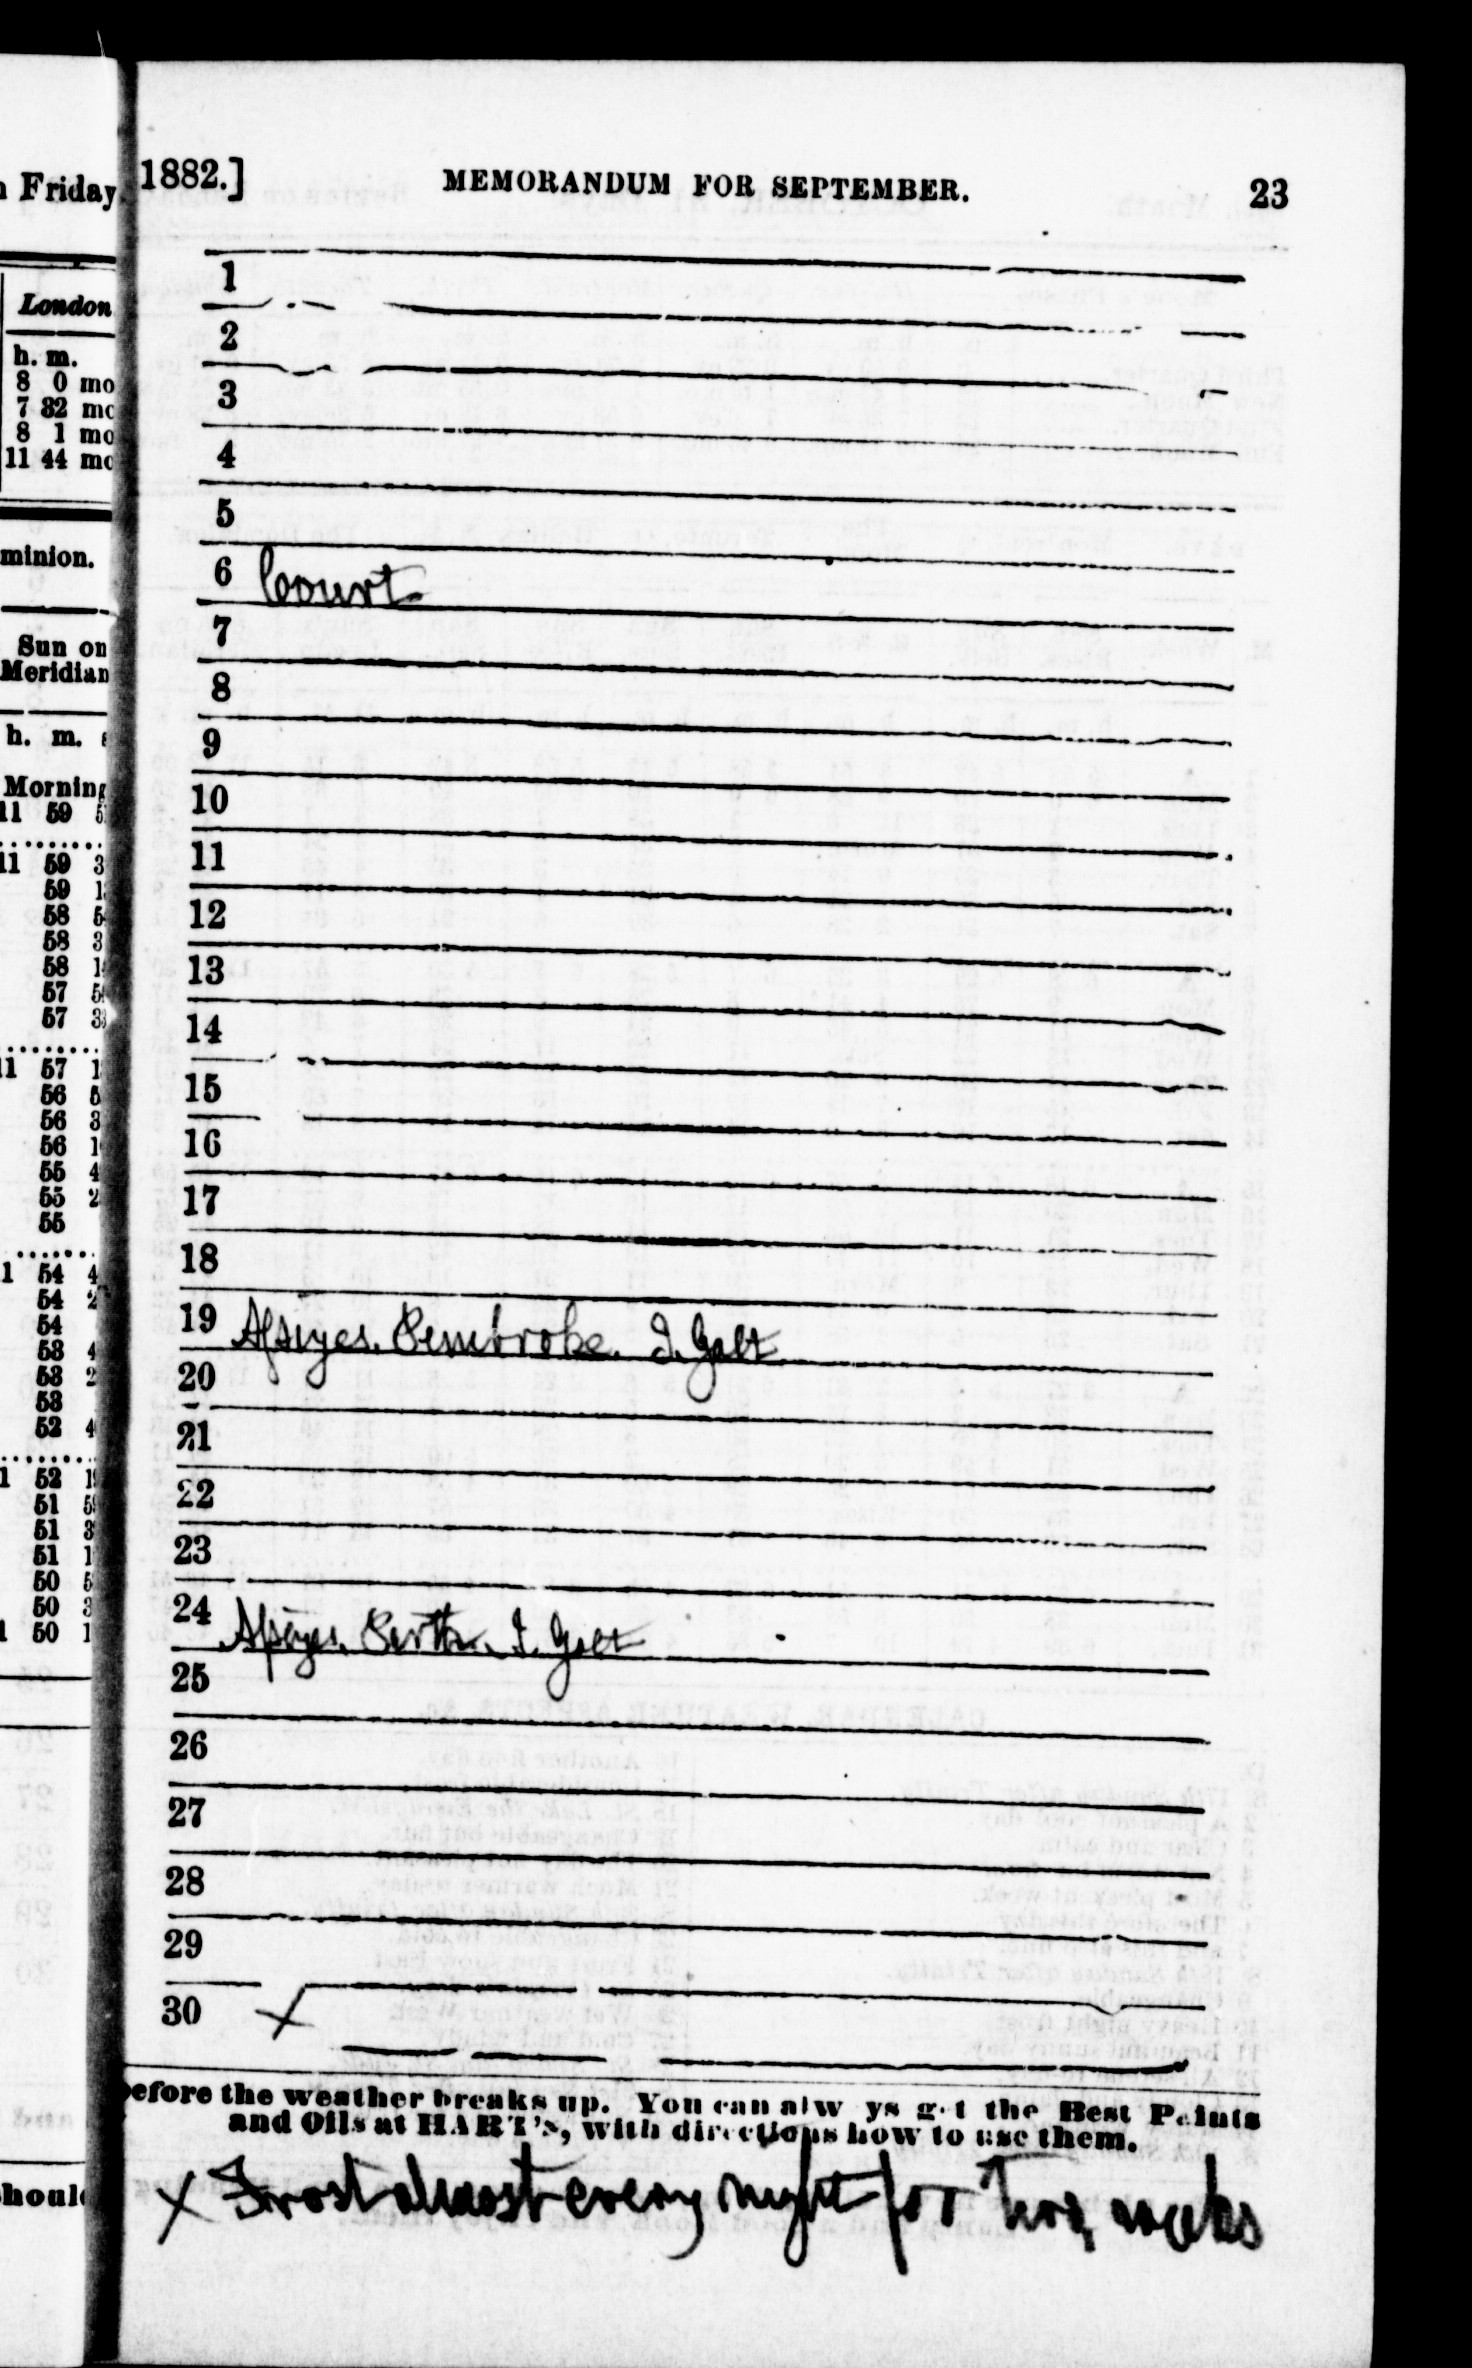 Friday
London
h. m.
8 0 mo
7 32 mo
8 1 mo
11 44 mo
minion.
Sun on
Meridian
h. m.
Morning
11 59
11 59 3
59 1
58 5
58 3
58 1
57 5
57 3
11 57 1
56 5
56 3
56 1
55 4
55 2
55
1 54 4
54 2
54
53 4
53 2
53
52 4
1 52 1
51 5
51 3
51 1
50 5
50 3
50 1
1882.] MEMORANDUM FOR SEPTEMBER. 23
1
2
3
4
5
6 Court
7
8
9
10
11
12
13
14
15
16
17
18
19 Assizes. Pembroke. J. Galt
20
21
22
23
24 Assizes. Perth. J. Galt
25
26
27
28
29
30 X
before the weather breaks up. You can alw ys g t the Best Paints
and Oils at HART's, with directions how to use them.
X Frost almost every night for two weeks